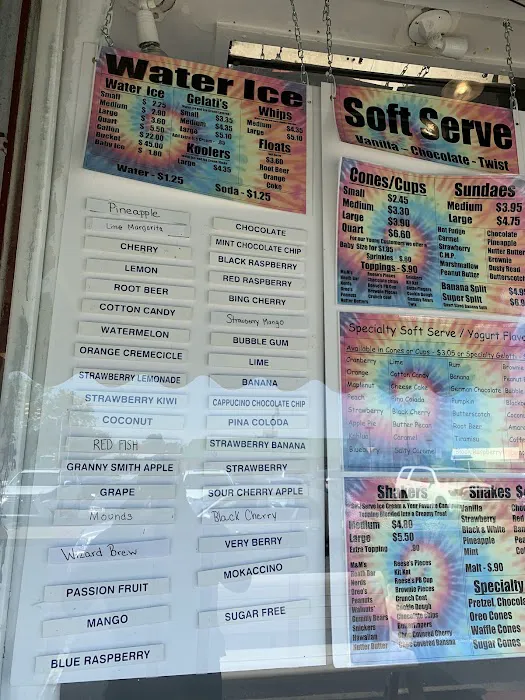 Water Ice
Water Ice
Small $ 2.25
Medium $ 2.80
Large $ 3.60
Quart $ 5.50
Gallon $ 22.00
Bucket $ 45.00
Baby Ice $ 1.80
Gelati's
Small $3.35
Medium $4.35
Large $5.10
Koolers
Large $4.35
Whips
Medium $4.35
Large $5.10
Floats
$3.60
Root Beer
Orange
Coke
Water - $1.25
Soda - $1.25
Pineapple
Lime Margarita
CHERRY
LEMON
ROOT BEER
COTTON CANDY
WATERMELON
ORANGE CREMECICLE
STRAWBERRY LEMONADE
STRAWBERRY KIWI
COCONUT
RED FISH
GRANNY SMITH APPLE
GRAPE
Mounds
Wizard Brew
PASSION FRUIT
MANGO
BLUE RASPBERRY
CHOCOLATE
MINT CHOCOLATE CHIP
BLACK RASPBERRY
RED RASPBERRY
BING CHERRY
Strawberry Mango
BUBBLE GUM
LIME
BANANA
CAPPUCINO CHOCOLATE CHIP
PINA COLODA
STRAWBERRY BANANA
STRAWBERRY
SOUR CHERRY APPLE
Black Cherry
VERY BERRY
MOKACCINO
SUGAR FREE
Soft Serve
Vanilla - Chocolate - Twist
Cones/Cups
Small $2.45
Medium $3.30
Large $3.90
Quart $6.60
For our Young Customers we offer a
Baby Size for $1.95
Sprinkles $.80
Toppings - $.90
Sundaes
Medium $3.95
Large $4.75
Hot Fudge
Carmel
Strawberry
C.M.P.
Marshmallow
Peanut Butter
Chocolate
Pineapple
Nutter Butter
Brownie
Dusty Road
Butterscotch
Banana Split
Super Split
Specialty Soft Serve / Yogurt
Available in Cones or Cups - $3.05 or Specialty
Cranberry
Orange
Maplenut
Peach
Strawberry
Apple Pie
Blueberry
Lime
Cotton Candy
Cheese Cake
Pina Colada
Black Cherry
Butter Pecan
Caramel
Salty Caramel
Rum
Banana
German Chocolate
Pumpkin
Butterscotch
Root Beer
Tiramisu
Shakers
Medium $4.80
Large $5.50
Extra Topping .80
M&M's
Heath Bar
Nerds
Oreo's
Peanuts
Walnuts
Gummy Bears
Snickers
Hawaiian
Nutter Butter
Reese's Pieces
Kit Kat
Reese's PB Cup
Brownie Pieces
Crunch Coat
Cookie Dough
Chocolate Chips
Butterfingers
Shakes
Vanilla
Strawberry
Black & White
Pineapple
Mint
Malt - $.90
Specialty
Pretzel
Oreo Cones
Waffle Cones
Sugar Cones